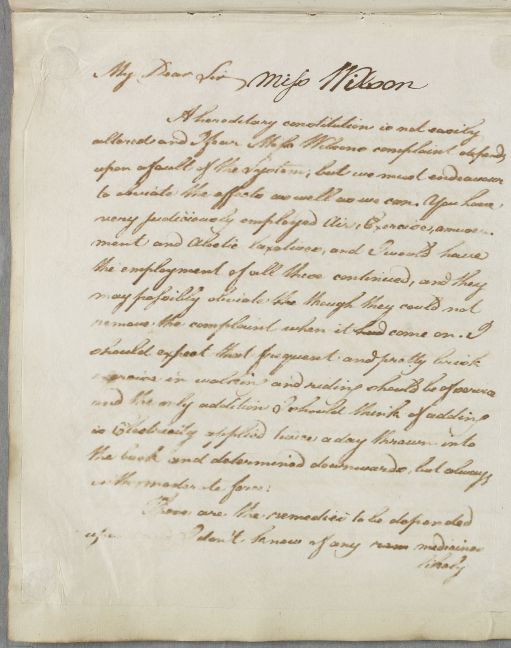 My Dear Sir Miss Wilson
A hereditary constitution is not easily
altered and I fear Miss Wilsons complaint depends
upon a fault of the System; but we must endeavour
to obviate the effects as well as we can. You have
very judiciously employed Air, Exercise, amuse-
ment and Aloetic laxatives, and I would have
the employment of all these continued, and they
may possibly obviate the though they could not
remove the complaint when it had come on. I
should expect that frequent and pretty brisk
exercise in walking and riding should be of service
and the only addition I should think of adding
is Electricity applied twice a day thrown into
the back and determined downwards, but always
with moderate force:
These are the remedies to be depended
upon and I don't know of any medicines
likely